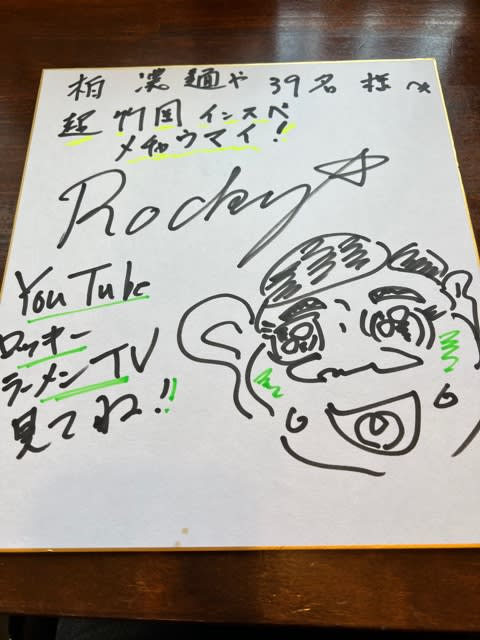 柏 濃麺や 39名 様へ
超 竹岡 インスパ
メチャウマイ!
Rocky☆
YouTube
ロッキー
ラーメンTV
見てね!!